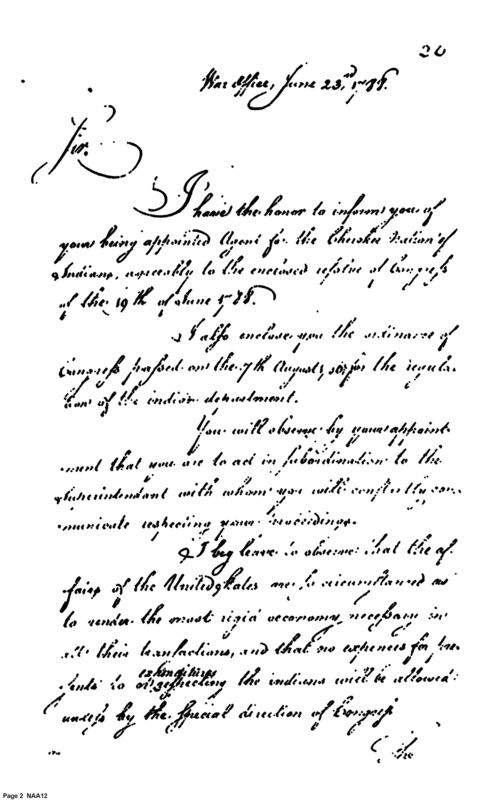 20
War Office, June 23.rd 1788.
Sir.
I have the honor to inform you of
your being appointed Agent for the Cherokee Nation of
Indians, agreeably to the enclosed resolve of Congress
of the 19th of June 1788.
I also enclose you the ordinance of
Congress passed on the 7th August, for the regula-
tion of the indian department.
You will observe by your appoint-
ment that you are to act in subordination to the
Superintendant with whom you will constantly com-
municate respecting your proceedings.
I beg leave to observe that the af-
fairs of the United States are so circumstanced as
to render the most rigid oeconomy necessary in
all their transactions, and that no expences for pre-
expenditures
sents to or respecting the indians will be allowed
unless by the special direction of Congress
The
Page 2 NAA12